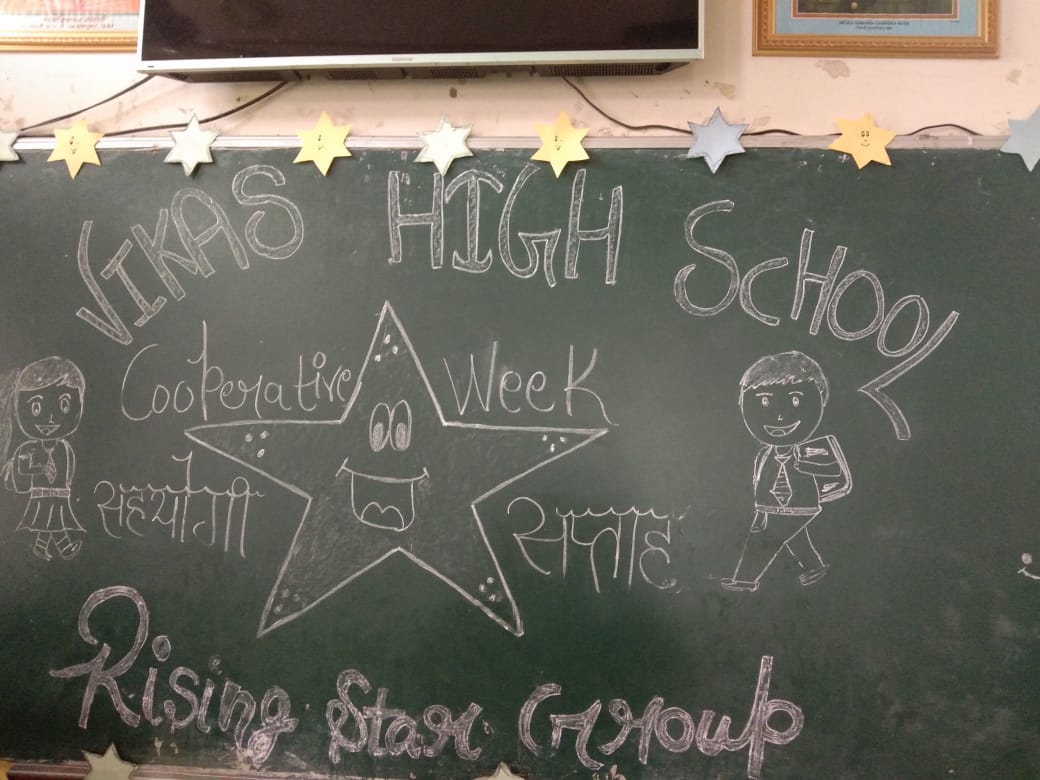 VIKAS HIGH SCHOOL
Cooperative Week
सहयोगी सप्ताह
Rising Star Group